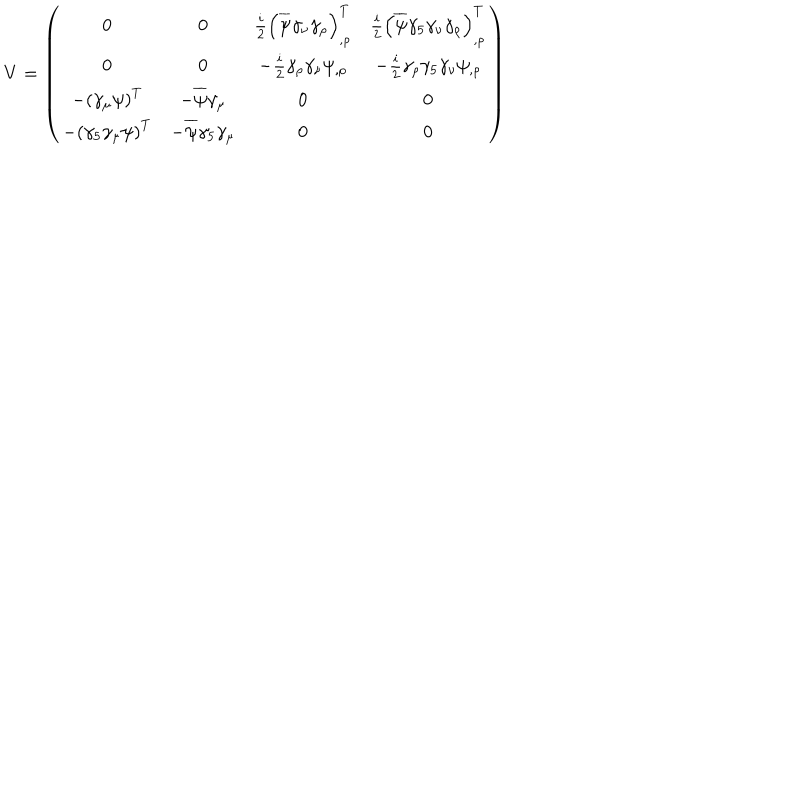 V = \left( \begin{array}{cccc} 0 & 0 & \frac{i}{2} \left( \overline{\psi} \gamma_{\nu} \gamma_{\rho} \right)^{T}_{,\rho} & \frac{i}{2} \left( \overline{\psi} \gamma_5 \gamma_{\nu} \gamma_{\rho} \right)^{T}_{,\rho} \\
0 & 0 & -\frac{i}{2} \gamma_{\rho} \gamma_{\nu} \psi_{,\rho} & -\frac{i}{2} \gamma_{\rho} \gamma_5 \gamma_{\nu} \psi_{,\rho} \\
-(\gamma_{\mu} \psi)^{T} & -\overline{\psi} \gamma_{\mu} & 0 & 0 \\
-(\gamma_5 \gamma_{\mu} \psi)^{T} & -\overline{\psi} \gamma_5 \gamma_{\mu} & 0 & 0 \end{array} \right)